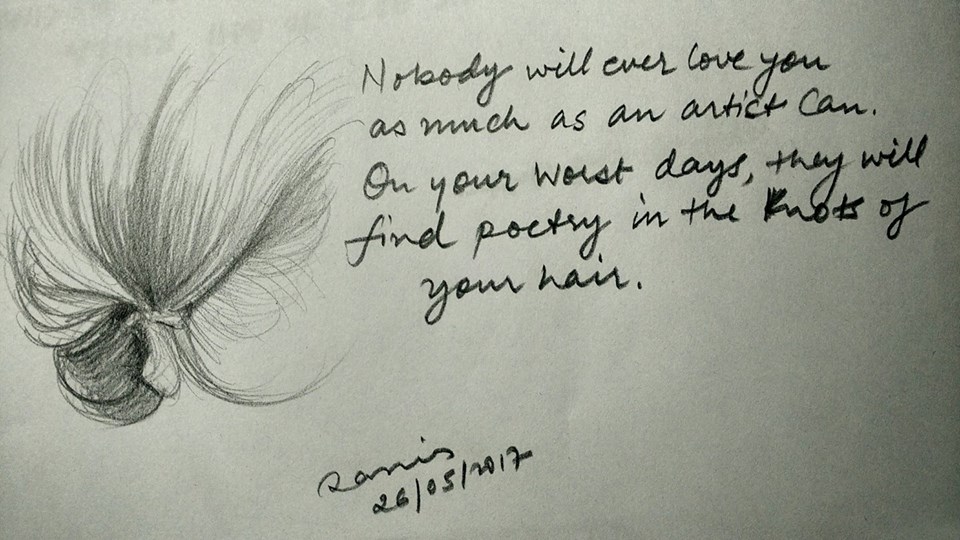 Nobody will ever love you
as much as an artist can.
On your worst days, they will
find poetry in the knots of
your hair.
26/05/2017